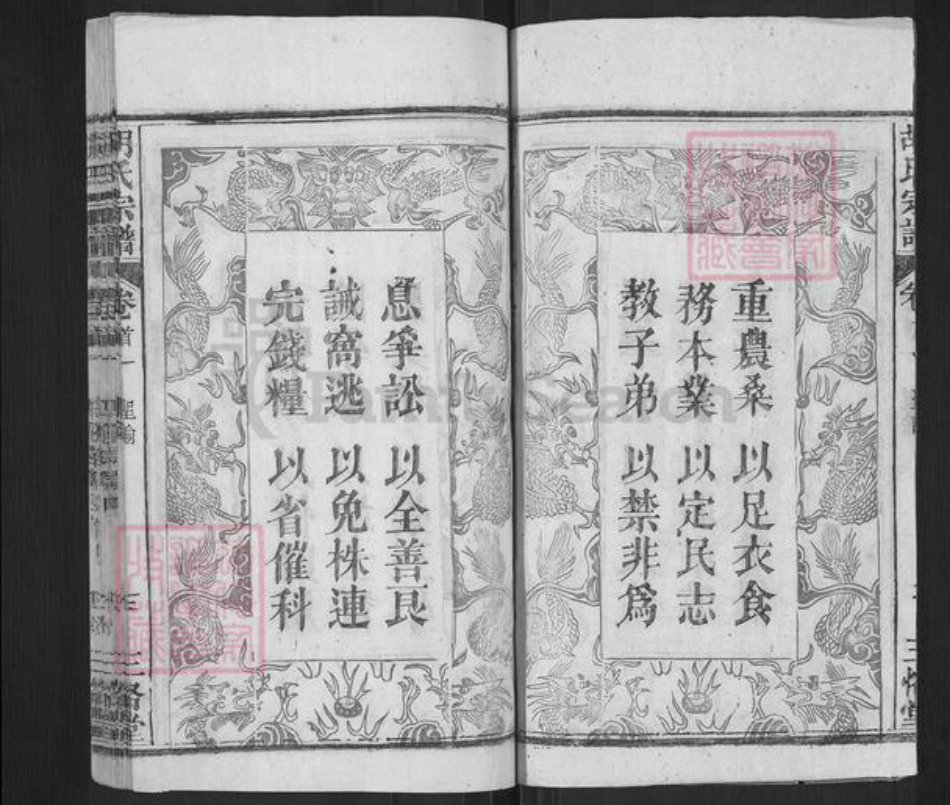 重農桑 以足衣食
務本業 以定民志
教子弟 以禁非爲
息爭訟 以全善良
誡窩逃 以免株連
完錢糧 以省催科
胡氏宗譜
卷首一
聖諭
三